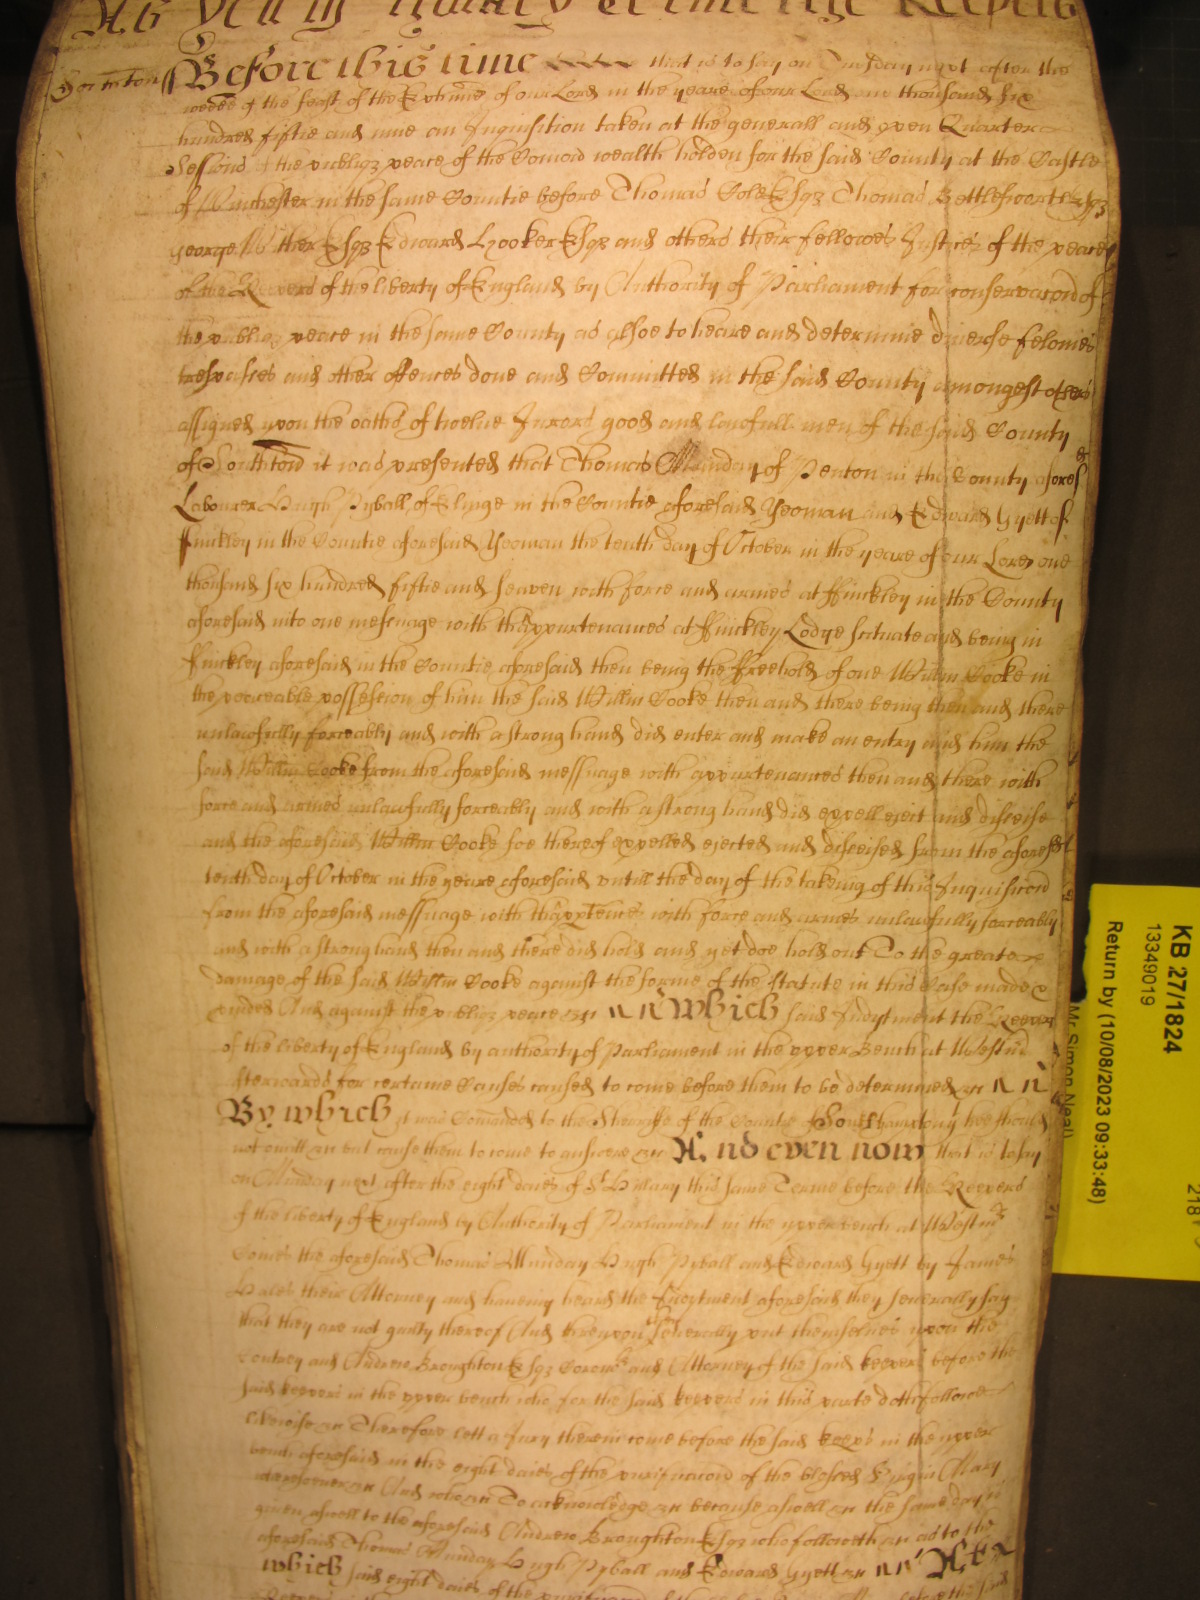 Before this time that is to say on Tuesday next after the
weeke of the feast of the Ephanie of our Lord in the yeare of our Lord one thousand six
hundred fiftie and nine an Inquisition taken at the generall and open Quarter
Sessions of the publiq3 peace of the Comon wealth holden for the said County at the Castle
of Winchester in the same Countie before Thomas Cole Esq3 Thomas Bettesworth Esq3
George Wither Esq3 Edward Hooker Esq3 and others their fellowes Justices of the peace
of the Keepers of the liberty of England by Authority of Parliament for conservacon of
the publiq3 peace in the same County as alsoe to heare and determine diverse felonies
trespasses and other offences done and Committed in the said County amongest others
assigned upon the oaths of twelve Jurors good and lawfull men of the said County
of Southton it was presented that Thomas Munday of Penton in the County afores
Labourer Hugh Pyball of Elinge in the Countie aforesaid Yeoman and Edward Gyett of
ffinckley in the Countie aforesaid Yeoman the tenth day of October in the yeare of our Lord one
thousand six hundred fiftie and seaven with force and armes at ffinckley in the County
aforesaid into one messuage with thappurtenances at ffinckley Lodge scituate and being in
ffinckley aforesaid in the Countie aforesaid then being the ffreehold of one Willm Cooke in
the peaceable possession of him the said Willm Cooke then and there being then and there
unlawfully forceably and with a strong hand did enter and make an entry and him the
said Willm Cooke from the aforesaid messuage with appurtenances then and there with
force and armes unlawfully forceably and with a strong hand did expell eject and disseise
and the aforesaid Willm Cooke soe thereof expelled ejected and disseised from the aforesd
tenth day of October in the yeare aforesaid untill the day of the takeing of this Inquisicon
from the aforesaid messuage with thapptenncs with force and armes unlawfully forceably
and with a strong hand then and there did hold and yet doe hold out To the greate
damage of the said Willm Cooke against the forme of the statute in this Case made &
pvided And against the publiq3 peace &c which said Indytment the Keepers
of the liberty of England by authority of Parliament in the upper Bench at Westm
afterwards for certaine Causes caused to come before them to be determined &c
By which it was Comanded to the Sherriffe of the Countie of Southampton that hee should
not omitt &c but cause them to come to answere &c And even now that is to say
on Munday next after the eight daies of St Hillary this same Terme before the Keepers
of the liberty of England by Authority of Parliament in the upper bench at Westmr
Comes the aforesaid Thomas Munday Hugh Pyball and Edward Gyett by James
Hales their Attorney and haveing heard the Indytment aforesaid they severally say
that they are not guilty thereof And thereupon severally put themselves upon the
Contrey and Andrew Broughton Esq3 Coronr and Attorney of the said keepers before the
said keepers in the upper bench who for the said keepers in this parte doth followe
likewise &c Therefore lett a Jury therein come before the said keeps in the upper
bench aforesaid in the eight daies of the purificacon of the blessed Virgin Mary
wheresoever &c And who &c To acknowledge &c because aswell &c the same day is
given aswell to the aforesaid Andrew Broughton Esq3 who followeth &c as to the
aforesaid Thomas Munday Hugh Pyball and Edward Gyett &c At
which said eight daies of the
KB 27/1824
13349019
Return by (10/08/2023 09:33:48)
Mr Simon Neal